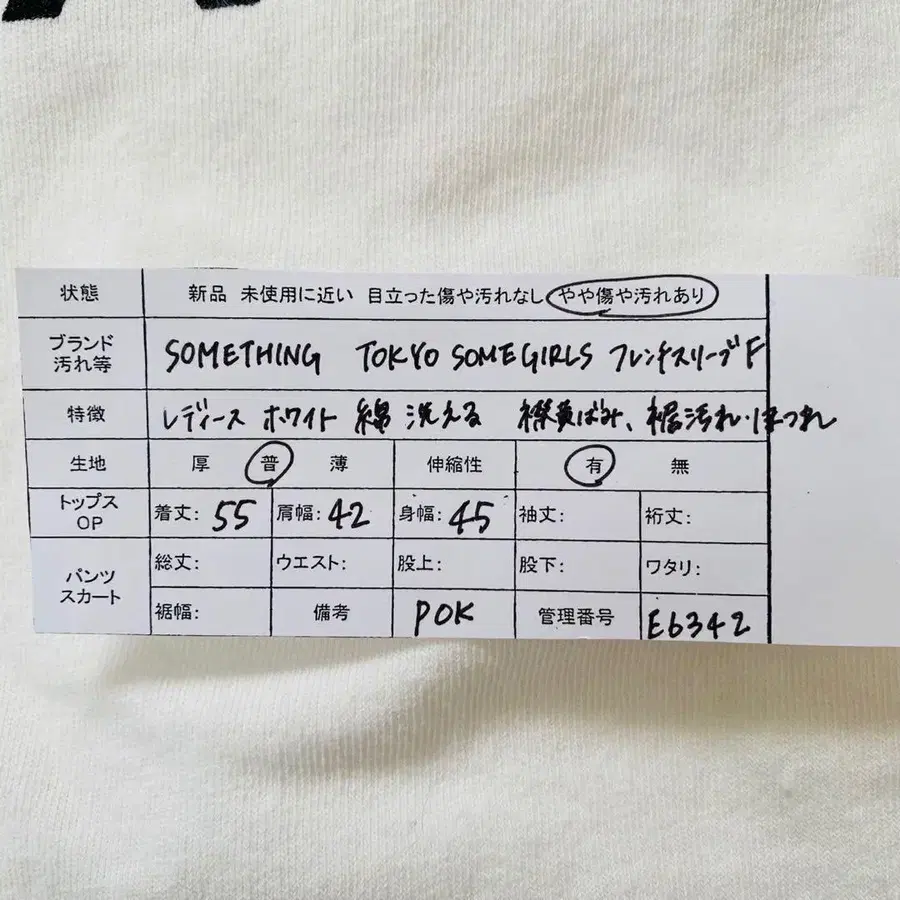 状態 新品 未使用に近い 目立った傷や汚れなし やや傷や汚れあり
ブランド
汚れ等
SOMETHING TOKYO SOMEGIRLS フレンチスリーブ F
特徴 レディース ホワイト 綿 洗える 襟黄ばみ、裾汚れ・ほつれ
生地 厚 普 薄 伸縮性 有 無
トップス
OP
着丈: 55 肩幅: 42 身幅: 45 袖丈: 裄丈:
パンツ
スカート
総丈: ウエスト: 股上: 股下: ワタリ:
裾幅: 備考 POK 管理番号 E6342